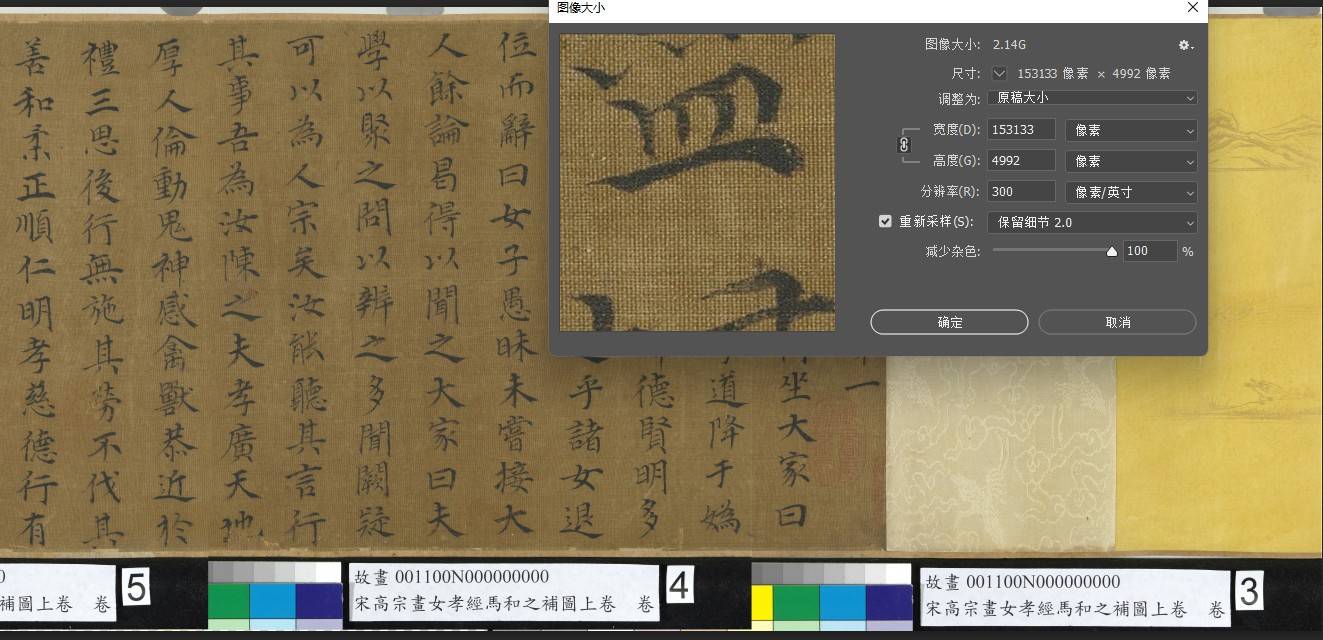 图像大小
图像大小: 2.14G
尺寸: 153133 像素 × 4992 像素
调整为: 原稿大小
宽度(D): 153133 像素
高度(G): 4992 像素
分辨率(R): 300 像素/英寸
重新采样(S): 保留细节 2.0
减少杂色: 100 %
确定 取消
一
坐大家曰
道降于媯
德賢明多
乎諸女退
位而辭曰女子愚昧未嘗接大
人餘論曷得以聞之大家曰夫
學以聚之問以辨之多聞闕疑
可以為人宗矣汝能聽其言行
其事吾為汝陳之夫孝廣天地
厚人倫動鬼神感禽獸恭近於
禮三思後行無施其勞不伐其
善和柔正順仁明孝慈德行有
故畫 001100N000000000
宋高宗畫女孝經馬和之補圖上卷 卷
3
故畫 001100N000000000
宋高宗畫女孝經馬和之補圖上卷 卷
4
0
補圖上卷 卷
5